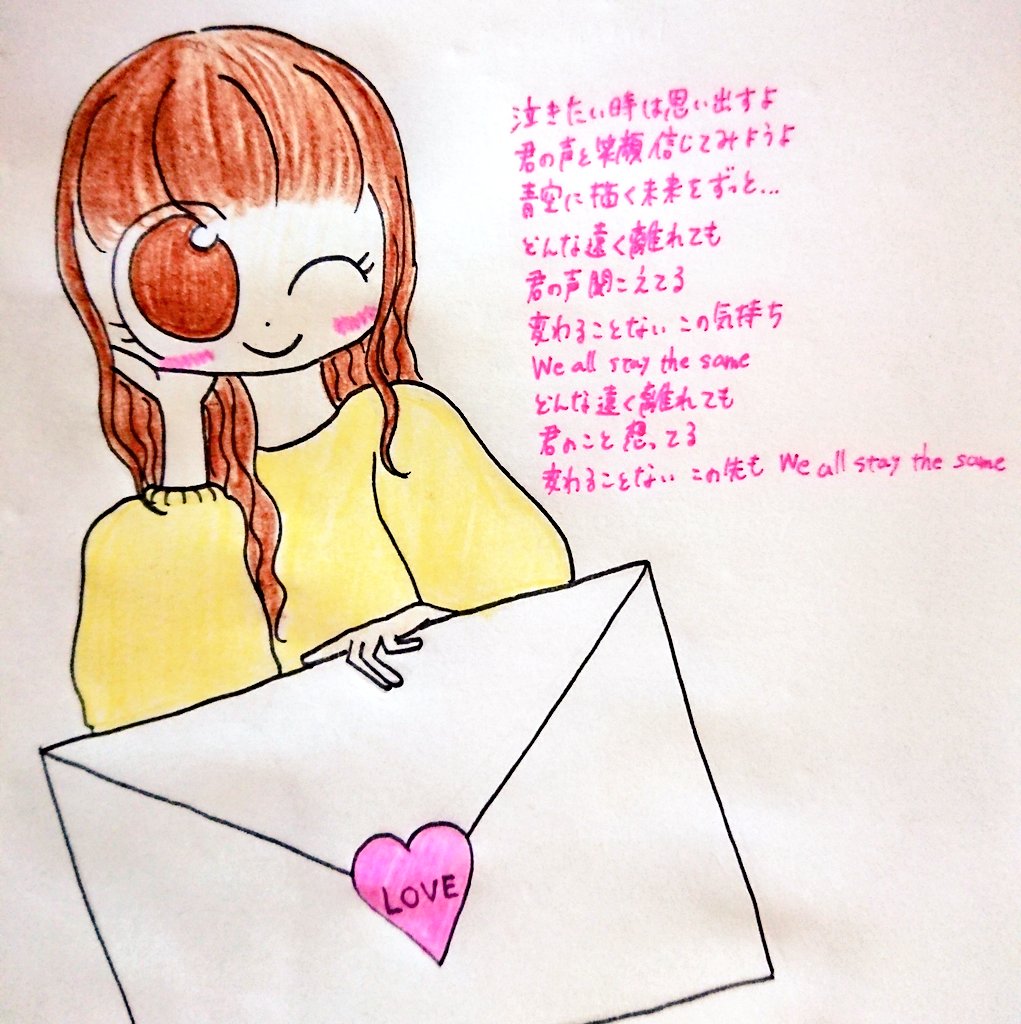 泣きたい時は思い出すよ
君の声と笑顔 信じてみようよ
青空に描く未来をずっと...
どんな遠く離れても
君の声聞こえてる
変わることない この気持ち
We all stay the same
どんな遠く離れても
君のこと 想ってる
変わることない この先も We all stay the same
LOVE